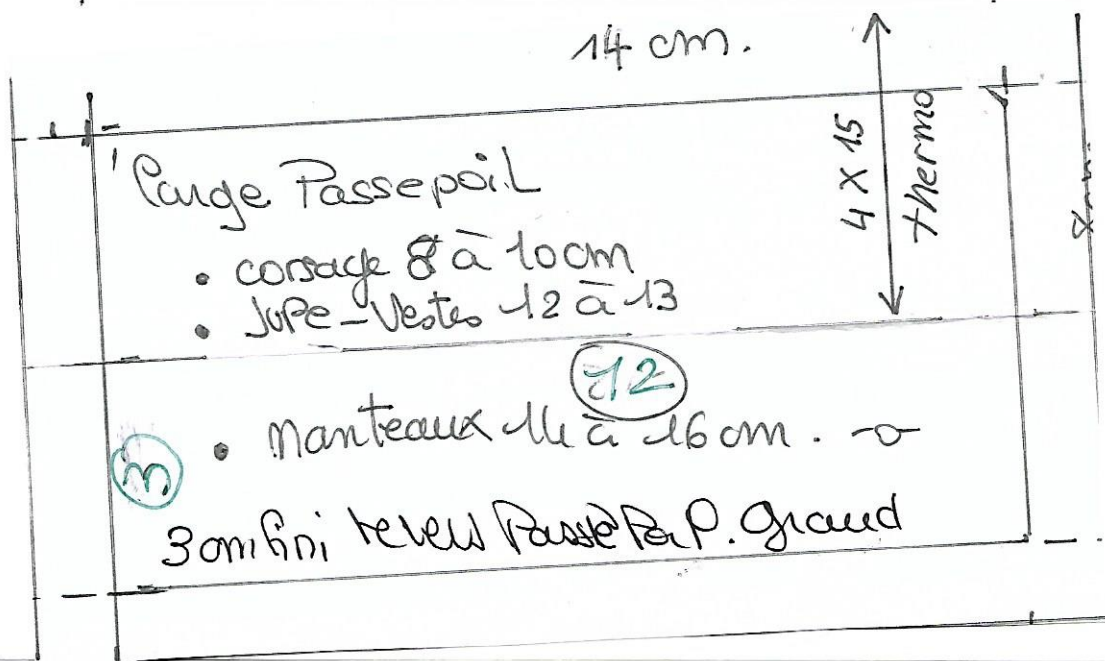 14 cm.
4 X 15
thermo
large Passepoil
• corsage 8 à 10cm
• Jupe-Vestes 12 à 13
12
• Manteaux 14 à 16 cm.
m
3 cm fini revers Passe Par P. Grand